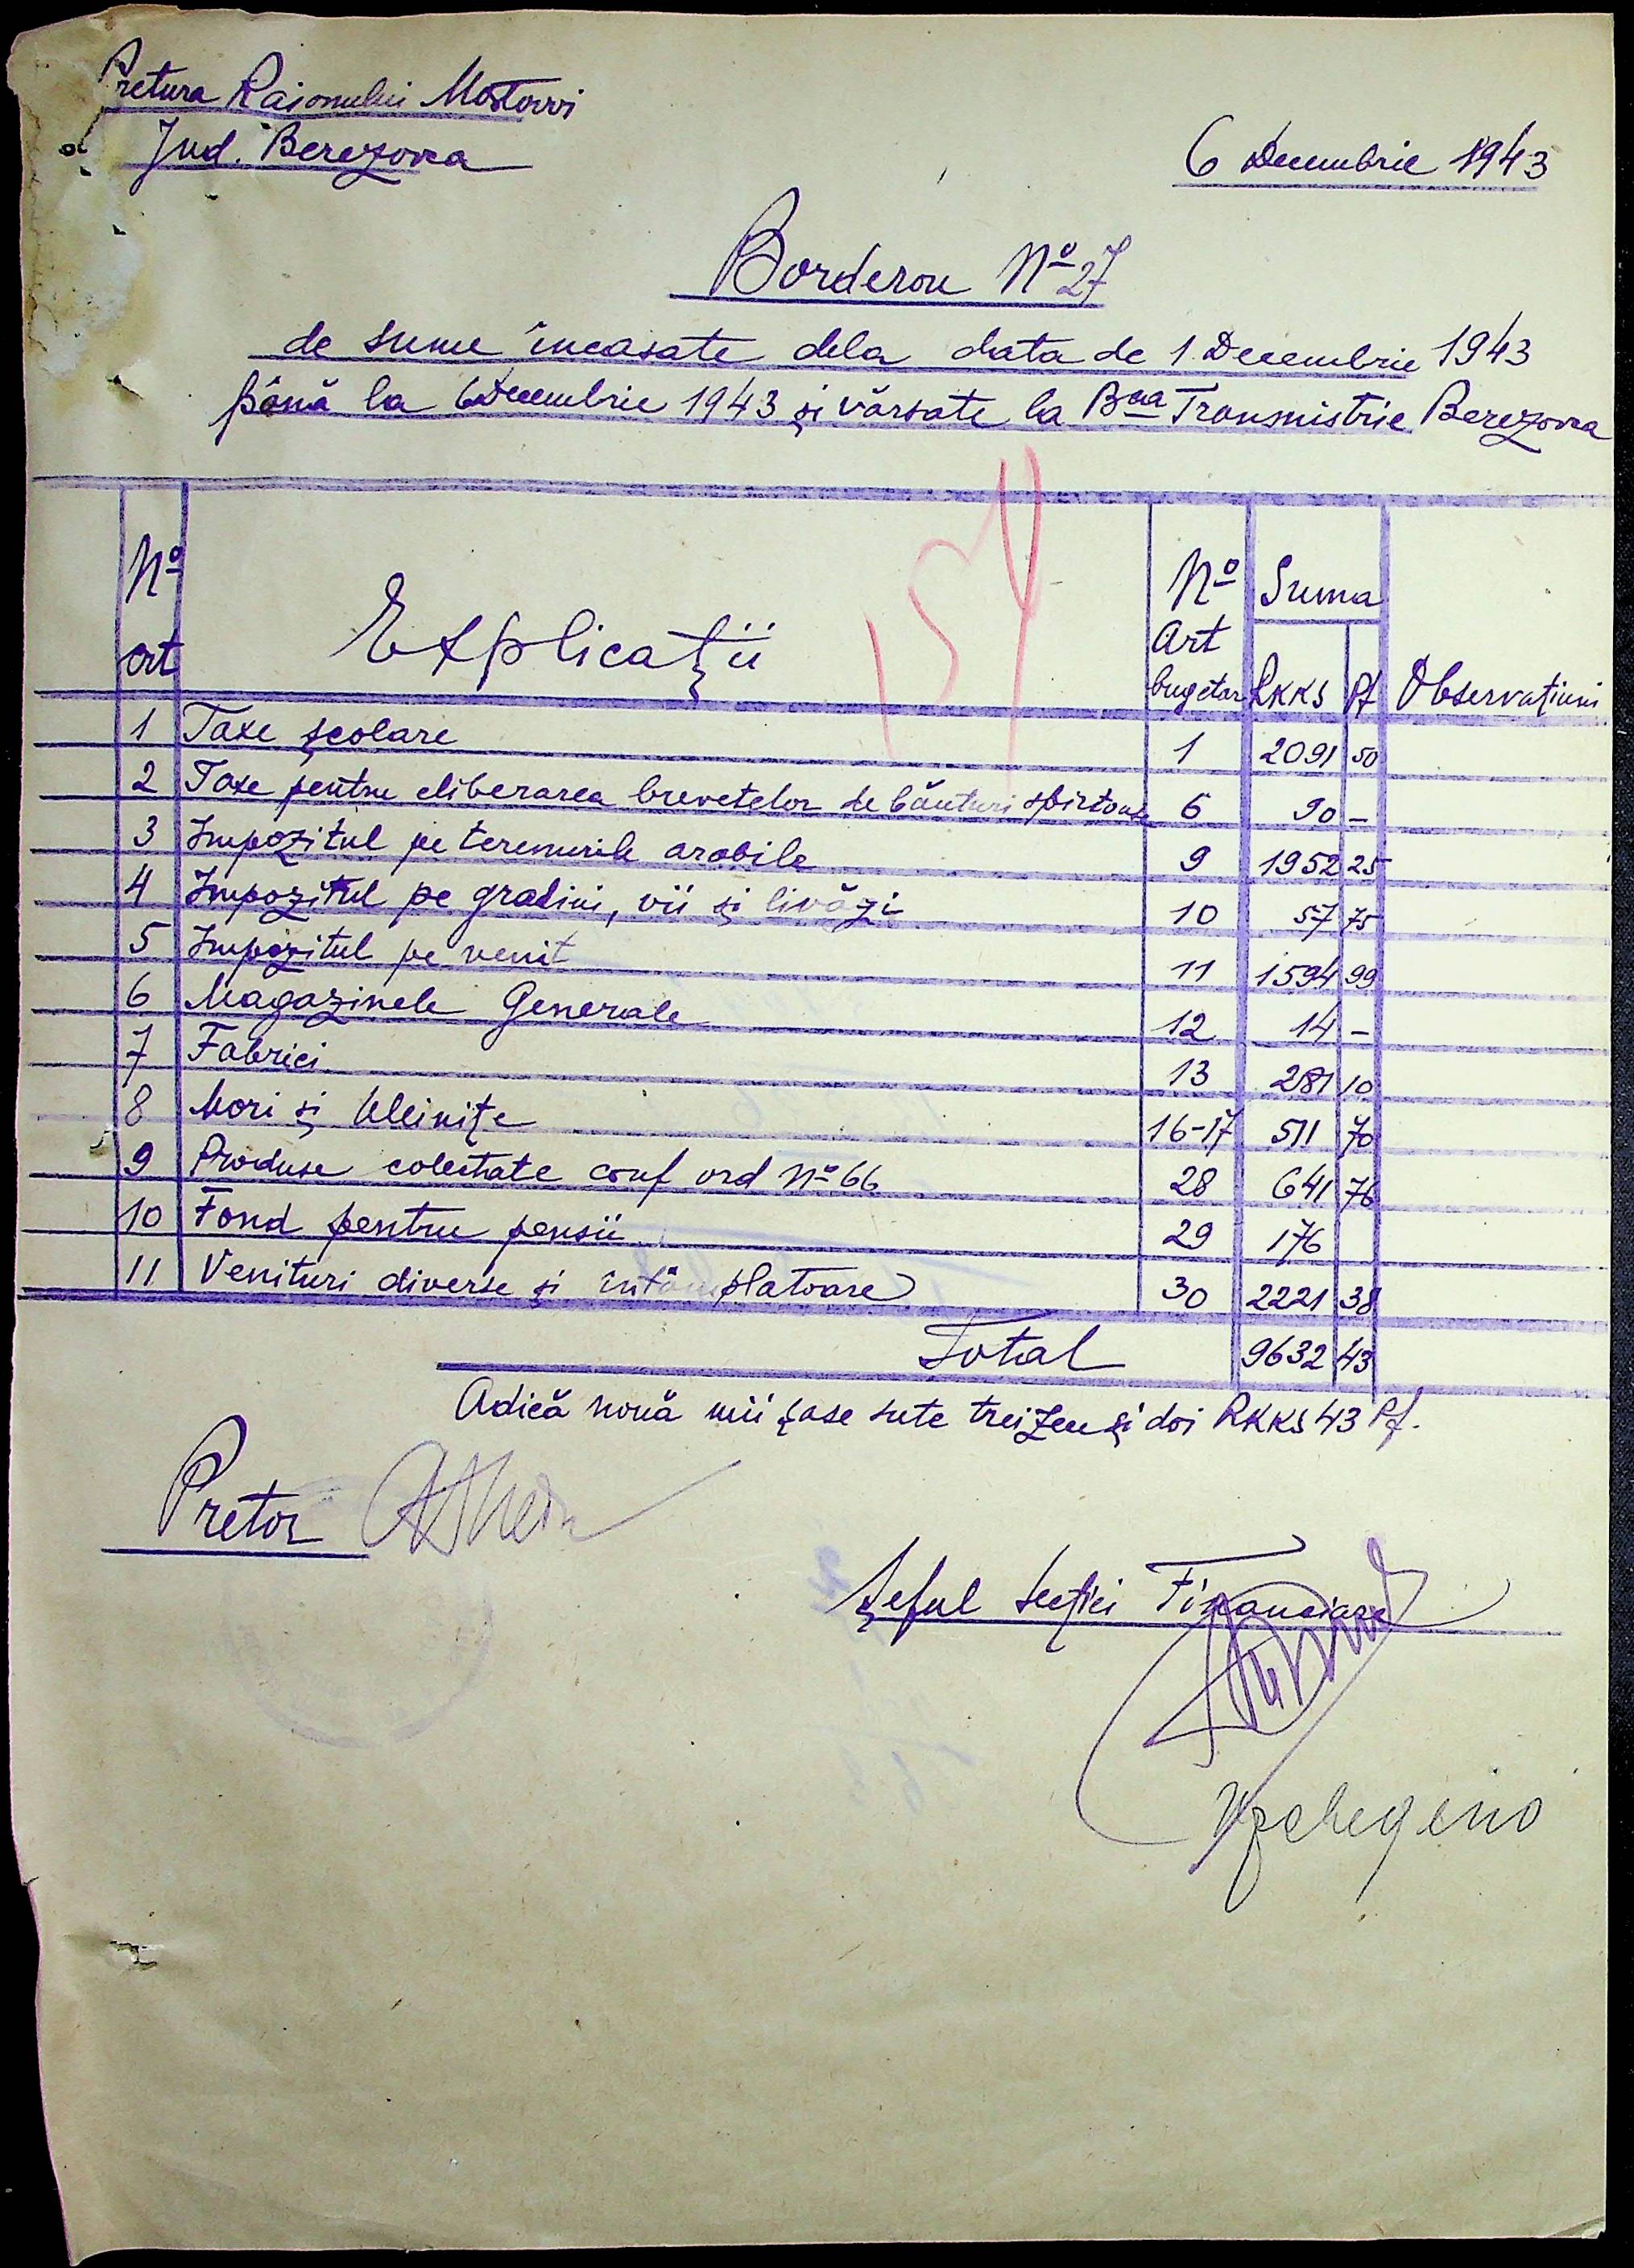 Pretura Raionului Mostovoi
Jud. Berezovca
6 Decembrie 1943
Borderou Nº 27
de sume încasate dela data de 1 Decembrie 1943
până la 6 Decembrie 1943 și vărsate la Bca Transnistrie Berezovca
154
Nº crt Explicații Nº Art bugetar Suma RKKS Pf Observațiuni
1 Taxe școlare 1 2091 50
2 Taxe pentru eliberarea brevetelor de băuturi spirtoase 6 90 –
3 Impozitul pe terenurile arabile 9 1952 25
4 Impozitul pe gradini, vii și livăzi 10 57 75
5 Impozitul pe venit 11 1594 99
6 Magazinele Generale 12 14 –
7 Fabrici 13 281 10
8 Mori și Uleinițe 16-17 511 70
9 Produse colectate conf ord Nº 66 28 641 76
10 Fond pentru pensii 29 176
11 Venituri diverse și întâmplatoare 30 2221 38
Total 9632 43
Adică nouă mii șase sute treizeci și doi RKKS 43 Pf.
Pretor
Șeful Secției Financiare